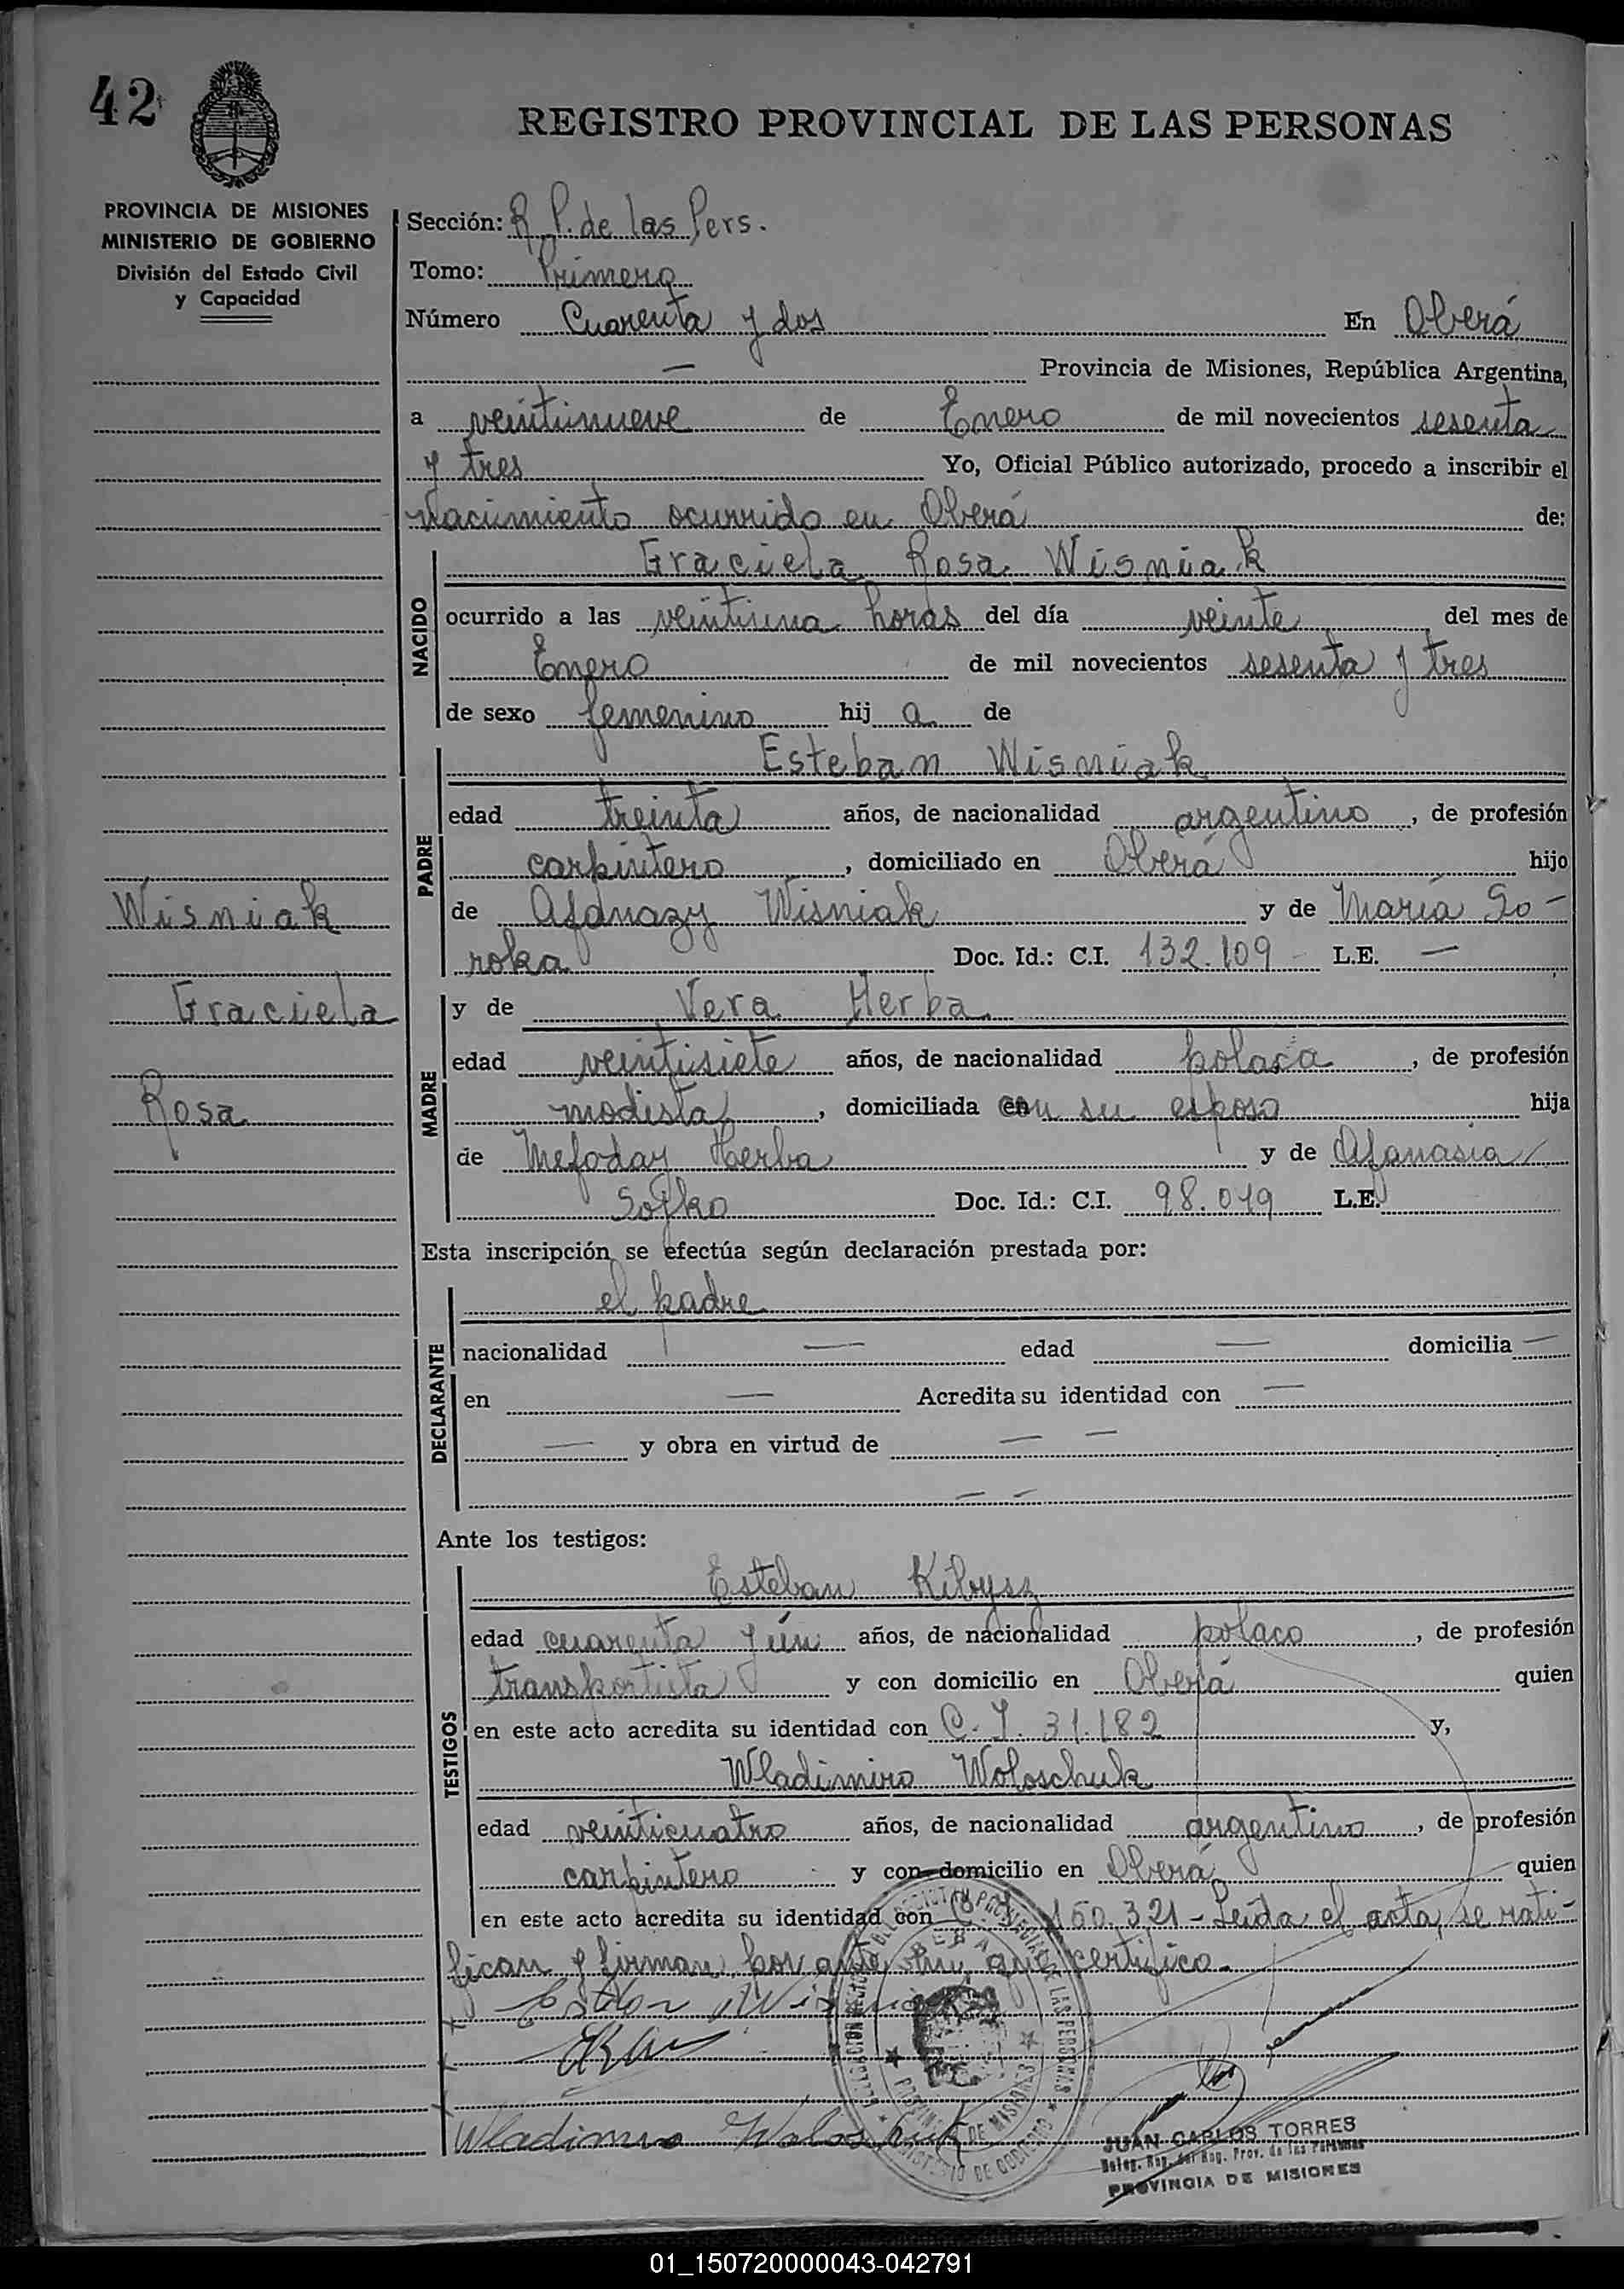 42
REGISTRO PROVINCIAL DE LAS PERSONAS
PROVINCIA DE MISIONES
MINISTERIO DE GOBIERNO
División del Estado Civil
y Capacidad
Sección: R. P. de las Pers.
Tomo: Primero
Número Cuarenta y dos En Oberá
— Provincia de Misiones, República Argentina,
a veintinueve de Enero de mil novecientos sesenta
y tres Yo, Oficial Público autorizado, procedo a inscribir el
nacimiento ocurrido en Oberá de:
NACIDO
Graciela Rosa Wisniak
ocurrido a las veintiuna horas del día veinte del mes de
Enero de mil novecientos sesenta y tres
de sexo femenino hij a de
PADRE
Esteban Wisniak
edad treinta años, de nacionalidad argentino, de profesión
carpintero, domiciliado en Oberá hijo
de Afanazy Wisniak y de María So-
roka Doc. Id.: C.I. 132.109 - L.E. —
Wisniak
Graciela
Rosa
MADRE
y de Vera Herba
edad veintisiete años, de nacionalidad polaca, de profesión
modista, domiciliada con su esposo hija
de Mefoday Herba y de Afanasia
Sojko Doc. Id.: C.I. 98.019 L.E.
Esta inscripción se efectúa según declaración prestada por:
DECLARANTE
el padre
nacionalidad — edad — domicilia —
en — Acredita su identidad con —
— y obra en virtud de — —
— —
Ante los testigos:
TESTIGOS
Esteban Kibysz
edad cuarenta y un años, de nacionalidad polaco, de profesión
transportista y con domicilio en Oberá quien
en este acto acredita su identidad con C. I. 31.182 y,
Wladimiro Woloschuk
edad veinticuatro años, de nacionalidad argentino, de profesión
carpintero y con domicilio en Oberá quien
en este acto acredita su identidad con C. I. 150.321 - Leída el acta, se rati-
fican y firman por ante mi, que certifico.
Wladimiro Woloschuk
JUAN CARLOS TORRES
Deleg. Reg. del Reg. Prov. de las Personas
PROVINCIA DE MISIONES
01_150720000043-042791